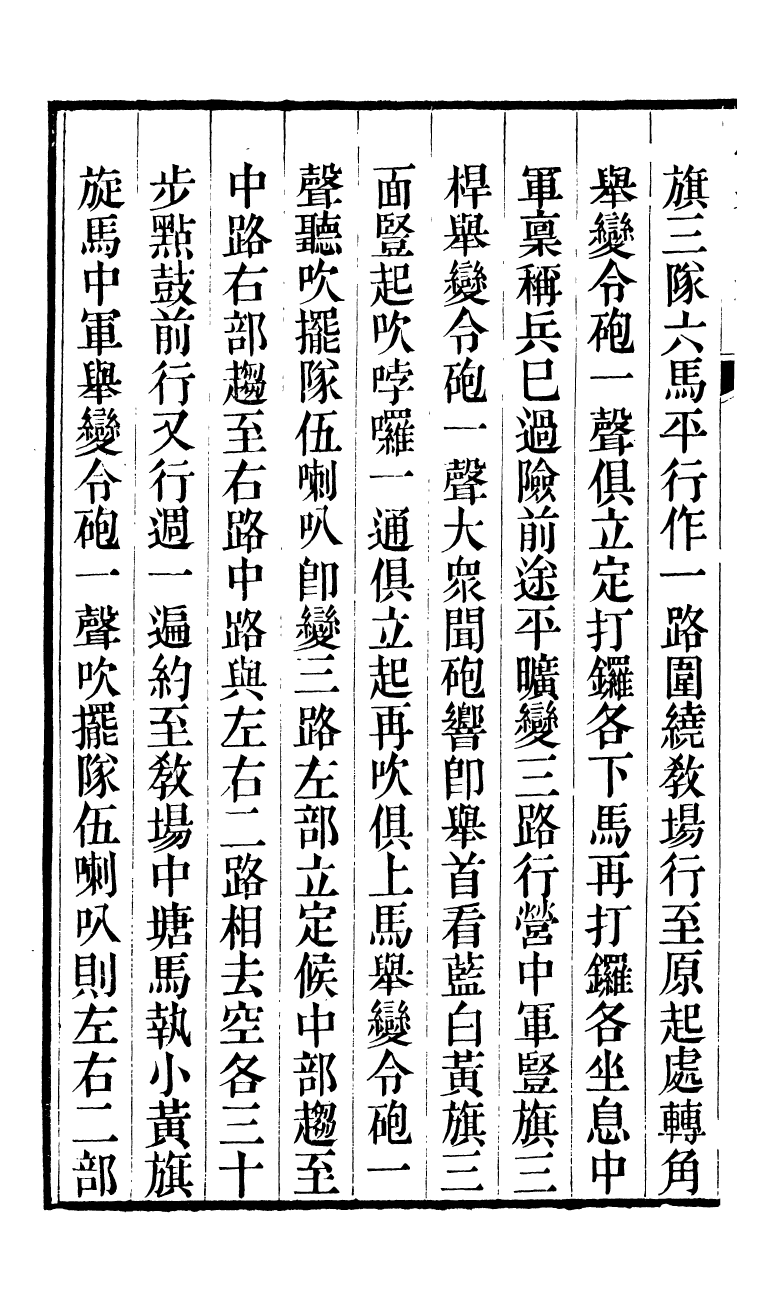 旗三隊六馬平行作一路圍繞敎場行至原起處轉角
舉變令砲一聲俱立定打鑼各下馬再打鑼各坐息中
軍稟稱兵巳過險前途平曠變三路行營中軍豎旗三
桿舉變令砲一聲大衆聞砲響卽舉首看藍白黃旗三
面豎起吹哱囉一通俱立起再吹俱上馬舉變令砲一
聲聽吹擺隊伍喇叭卽變三路左部立定候中部趨至
中路右部趨至右路中路與左右二路相去空各三十
步點鼓前行又行週一遍約至敎場中塘馬執小黃旗
旋馬中軍舉變令砲一聲吹擺隊伍喇叭則左右二部